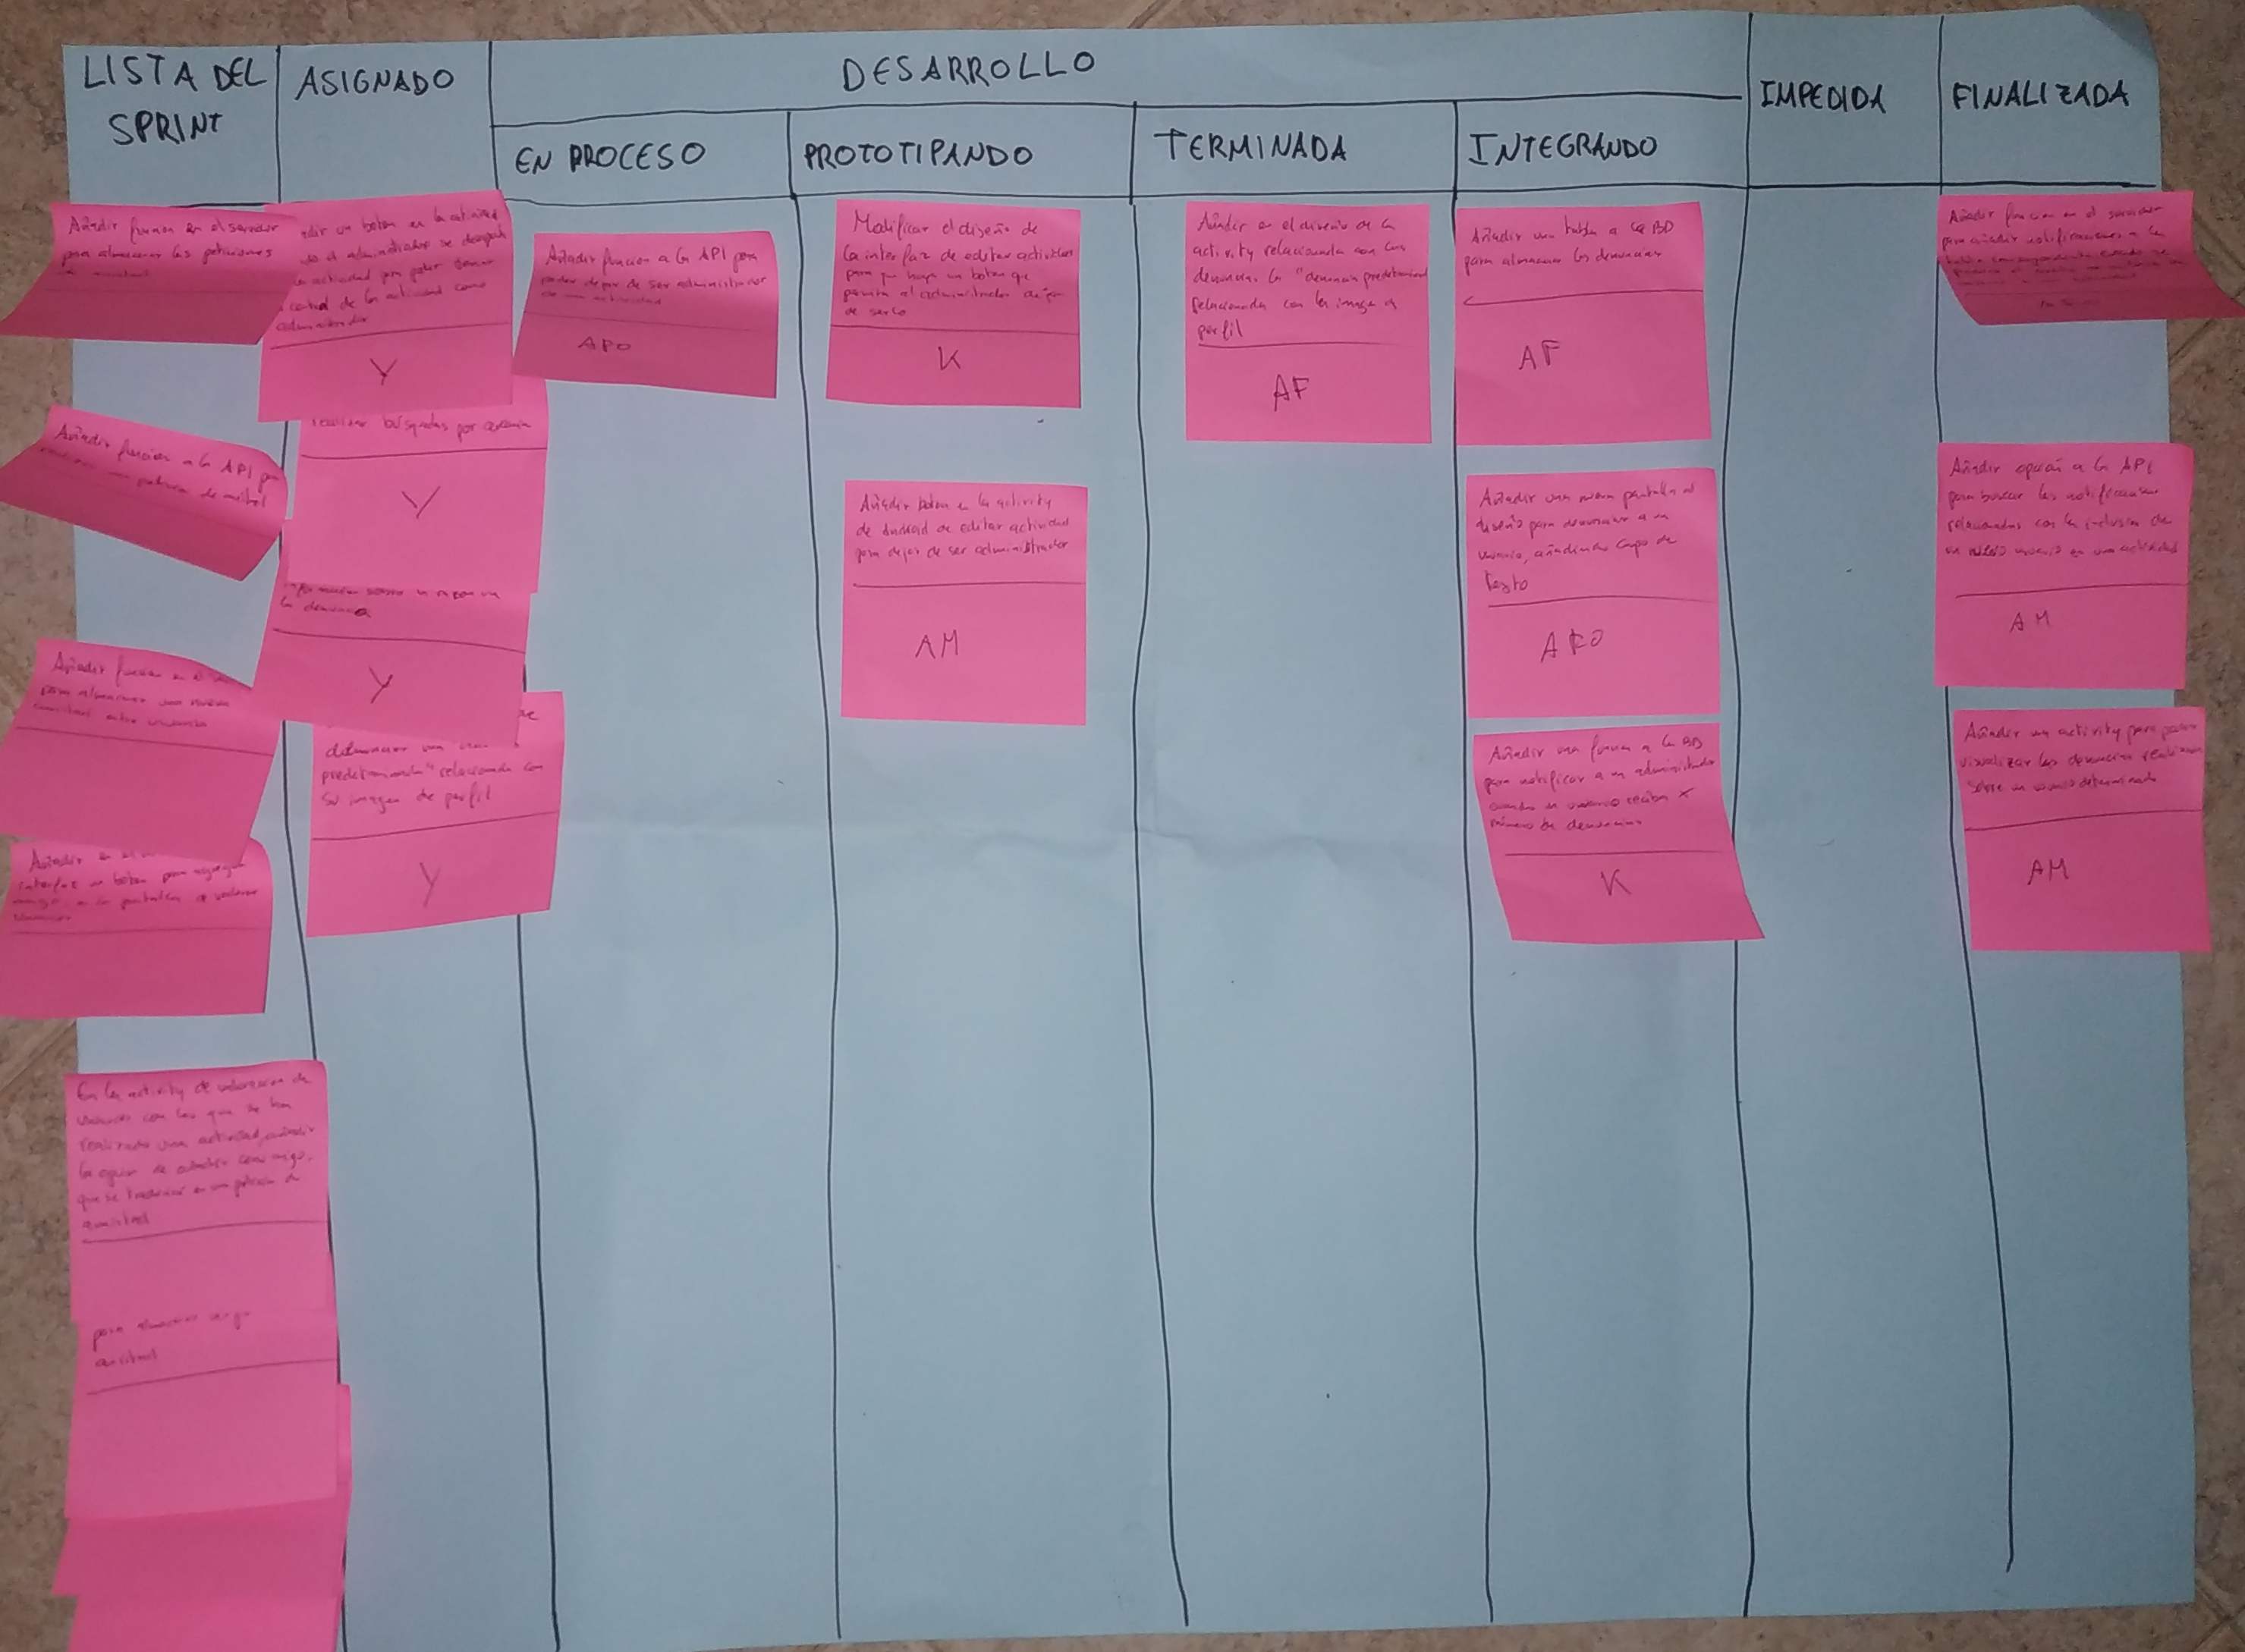 LISTA DEL
SPRINT
ASIGNADO
DESARROLLO
EN PROCESO
PROTOTIPANDO
TERMINADA
INTEGRANDO
IMPEDIDA
FINALIZADA
Añadir funcion en el servidor
para almacenar las peticiones
Añadir funcion a la API para
peticion de
Añadir funcion en el
para almacenar una nueva
entre usuarios
Añadir en
interfaz un boton para agregar
a la pantalla de valorar
En la activity de valoracion de
usuarios con los que se han
realizado una actividad, añadir
la opcion de añadir como amigo,
que se en una peticion de
amistad
para almacenar
amistad
un boton en la actividad
el administrador se
actividad para poder tener
control de la actividad como
administrador
Y
realizar búsquedas por
Y
la denuncia
Y
denunciar una
predeterminada" relacionada con
su imagen de perfil
Y
Añadir funcion a la API para
poder dejar de ser administrador
de una actividad
APO
Modificar el diseño de
la interfaz de editar actividades
para que haya un boton que
permita al administrador dejar
de serlo
K
Añadir boton en la activity
de Android de editar actividad
para dejar de ser administrador
AM
Añadir en el diseño de la
activity relacionada con las
denuncias, la "denuncia predeterminada
relacionada con la imagen de
perfil
AF
Añadir una tabla a la BD
para almacenar las denuncias
AF
Añadir una nueva pantalla al
diseño para denunciar a un
usuario, añadiendo campo de
texto
APO
Añadir una funcion a la BD
para notificar a un administrador
cuando un usuario reciba X
número de denuncias
K
Añadir funcion en el servidor
para añadir notificaciones a la
tabla
Añadir opción a la API
para buscar las notificaciones
relacionadas con la inclusion de
un nuevo usuario en una actividad
AM
Añadir un activity para poder
visualizar las denuncias realizadas
sobre un usuario determinado
AM